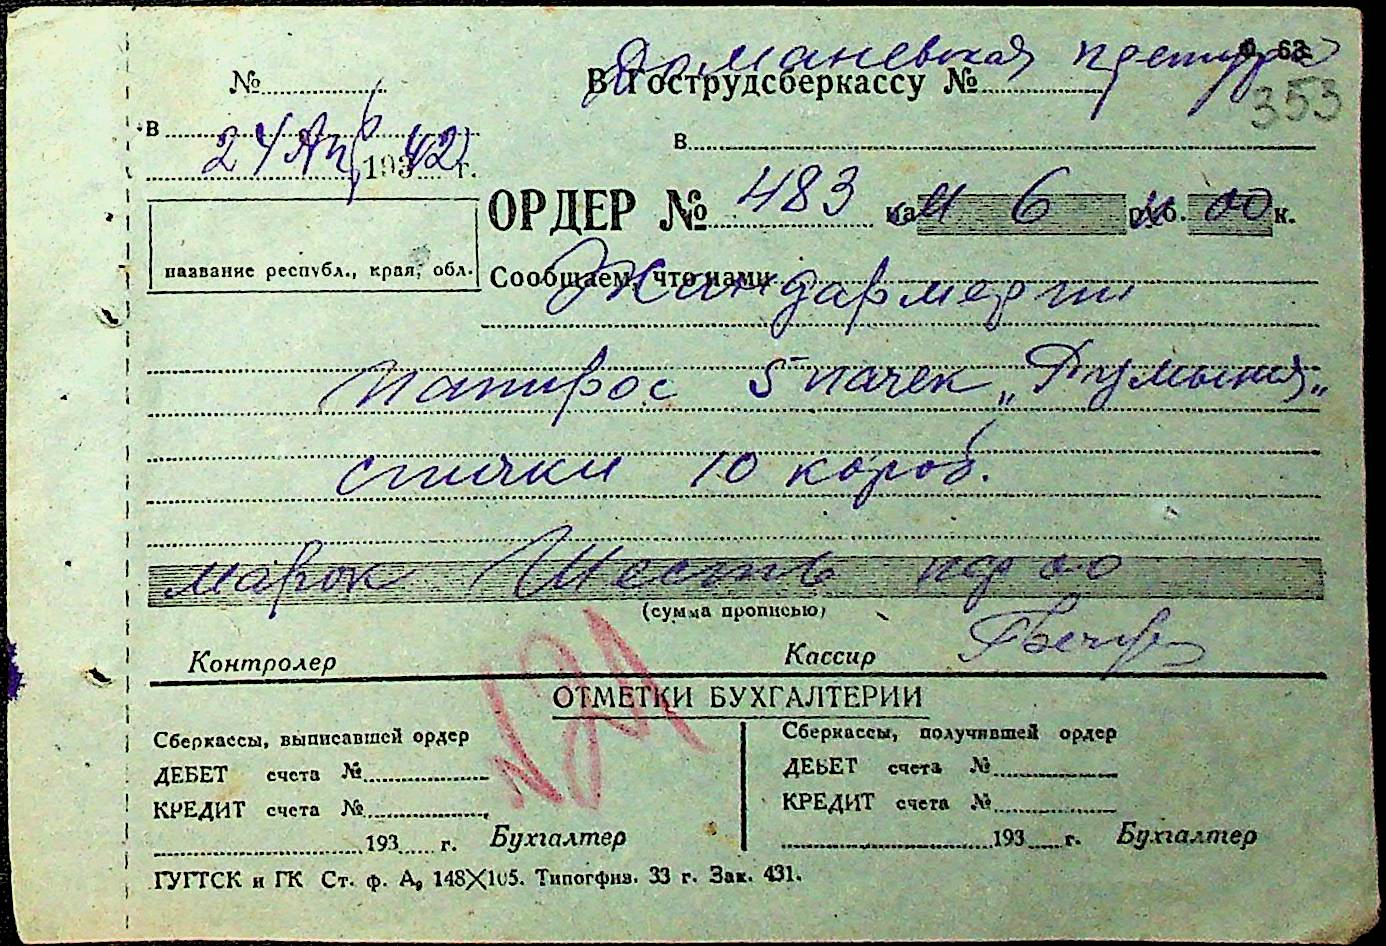 Доманевская претура
№ ........ В Гострудсберкассу № ........ Ф. 63
353
в ........ в ........
24 Апр 1942 г.
ОРДЕР № 483 на М 6 руб. 00 к.
название республ., края, обл.
Сообщаем, что нами Жандармерии
Папирос 5 пачек „Румыния„
спички 10 короб.
марок Шесть пф 00
(сумма прописью)
Контролер Кассир
ОТМЕТКИ БУХГАЛТЕРИИ
Сберкассы, выписавшей ордер Сберкассы, получившей ордер
ДЕБЕТ счета № ........ ДЕБЕТ счета № ........
КРЕДИТ счета № ........ КРЕДИТ счета № ........
........ 193 .... г. Бухгалтер ........ 193 .... г. Бухгалтер
ГУГТСК и ГК Ст. ф. А, 148X105. Типогфиз. 33 г. Зак. 431.